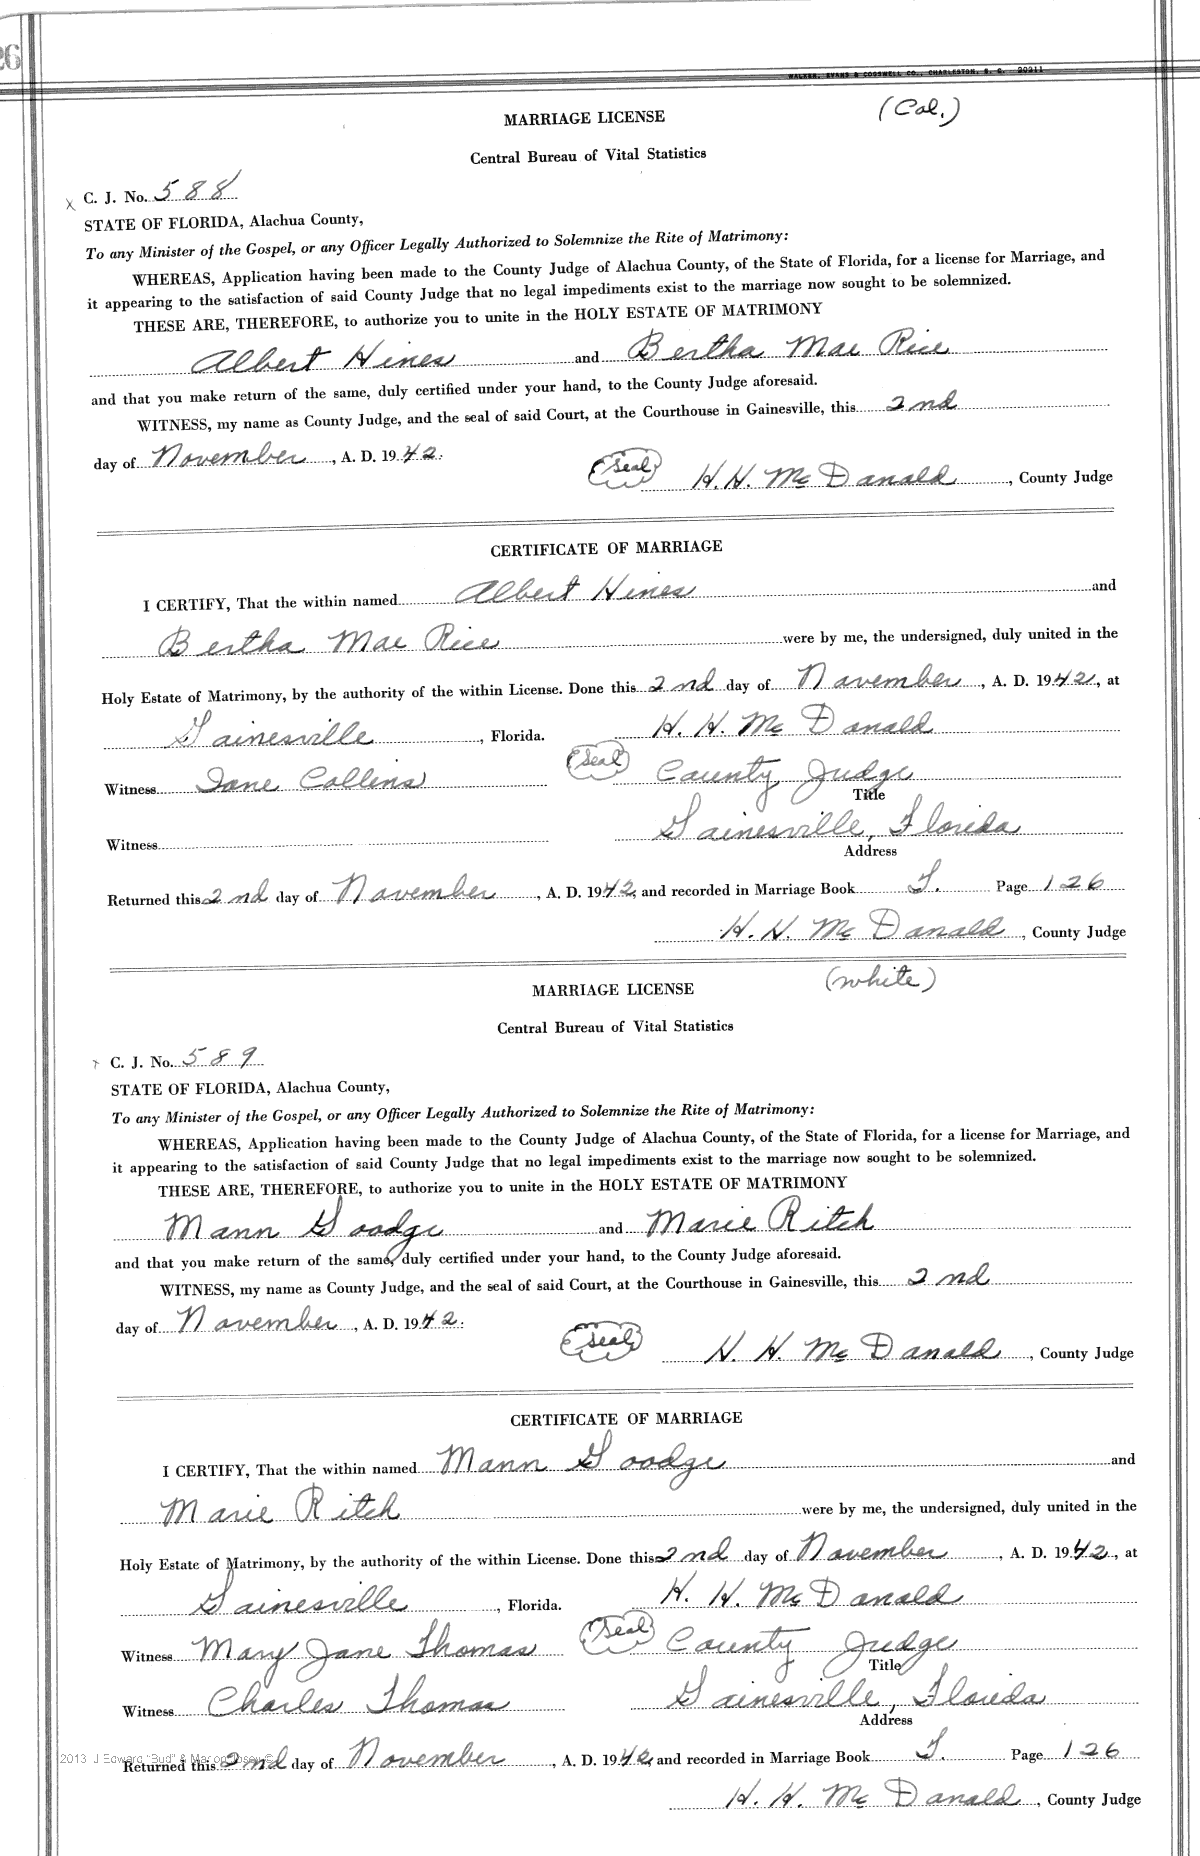 26
WALKER, EVANS & COGSWELL CO., CHARLESTON, S. C. 20211
MARRIAGE LICENSE (Col.)
Central Bureau of Vital Statistics
X C. J. No. 588
STATE OF FLORIDA, Alachua County,
To any Minister of the Gospel, or any Officer Legally Authorized to Solemnize the Rite of Matrimony:
WHEREAS, Application having been made to the County Judge of Alachua County, of the State of Florida, for a license for Marriage, and
it appearing to the satisfaction of said County Judge that no legal impediments exist to the marriage now sought to be solemnized.
THESE ARE, THEREFORE, to authorize you to unite in the HOLY ESTATE OF MATRIMONY
Albert Hines and Bertha Mae Rice
and that you make return of the same, duly certified under your hand, to the County Judge aforesaid.
WITNESS, my name as County Judge, and the seal of said Court, at the Courthouse in Gainesville, this 2nd
day of November, A. D. 1942. Seal H. H. McDonald, County Judge
CERTIFICATE OF MARRIAGE
I CERTIFY, That the within named Albert Hines and
Bertha Mae Rice were by me, the undersigned, duly united in the
Holy Estate of Matrimony, by the authority of the within License. Done this 2nd day of November, A. D. 1942, at
Gainesville, Florida. H. H. McDonald
Witness Jane Collins Seal County Judge
Title
Gainesville, Florida
Witness
Address
Returned this 2nd day of November, A. D. 1942, and recorded in Marriage Book T. Page 126
H. H. McDonald, County Judge
MARRIAGE LICENSE (white)
Central Bureau of Vital Statistics
C. J. No. 589
STATE OF FLORIDA, Alachua County,
To any Minister of the Gospel, or any Officer Legally Authorized to Solemnize the Rite of Matrimony:
WHEREAS, Application having been made to the County Judge of Alachua County, of the State of Florida, for a license for Marriage, and
it appearing to the satisfaction of said County Judge that no legal impediments exist to the marriage now sought to be solemnized.
THESE ARE, THEREFORE, to authorize you to unite in the HOLY ESTATE OF MATRIMONY
Mann Goodge and Marie Ritch
and that you make return of the same, duly certified under your hand, to the County Judge aforesaid.
WITNESS, my name as County Judge, and the seal of said Court, at the Courthouse in Gainesville, this 2nd
day of November, A. D. 1942. Seal H. H. McDonald, County Judge
CERTIFICATE OF MARRIAGE
I CERTIFY, That the within named Mann Goodge and
Marie Ritch were by me, the undersigned, duly united in the
Holy Estate of Matrimony, by the authority of the within License. Done this 2nd day of November, A. D. 1942, at
Gainesville, Florida. H. H. McDonald
Witness Mary Jane Thomas Seal County Judge
Title
Witness Charles Thomas Gainesville, Florida
Address
2013 J Edward "Bud" &
Returned this 2nd day of November, A. D. 1942, and recorded in Marriage Book T. Page 126
H. H. McDonald, County Judge